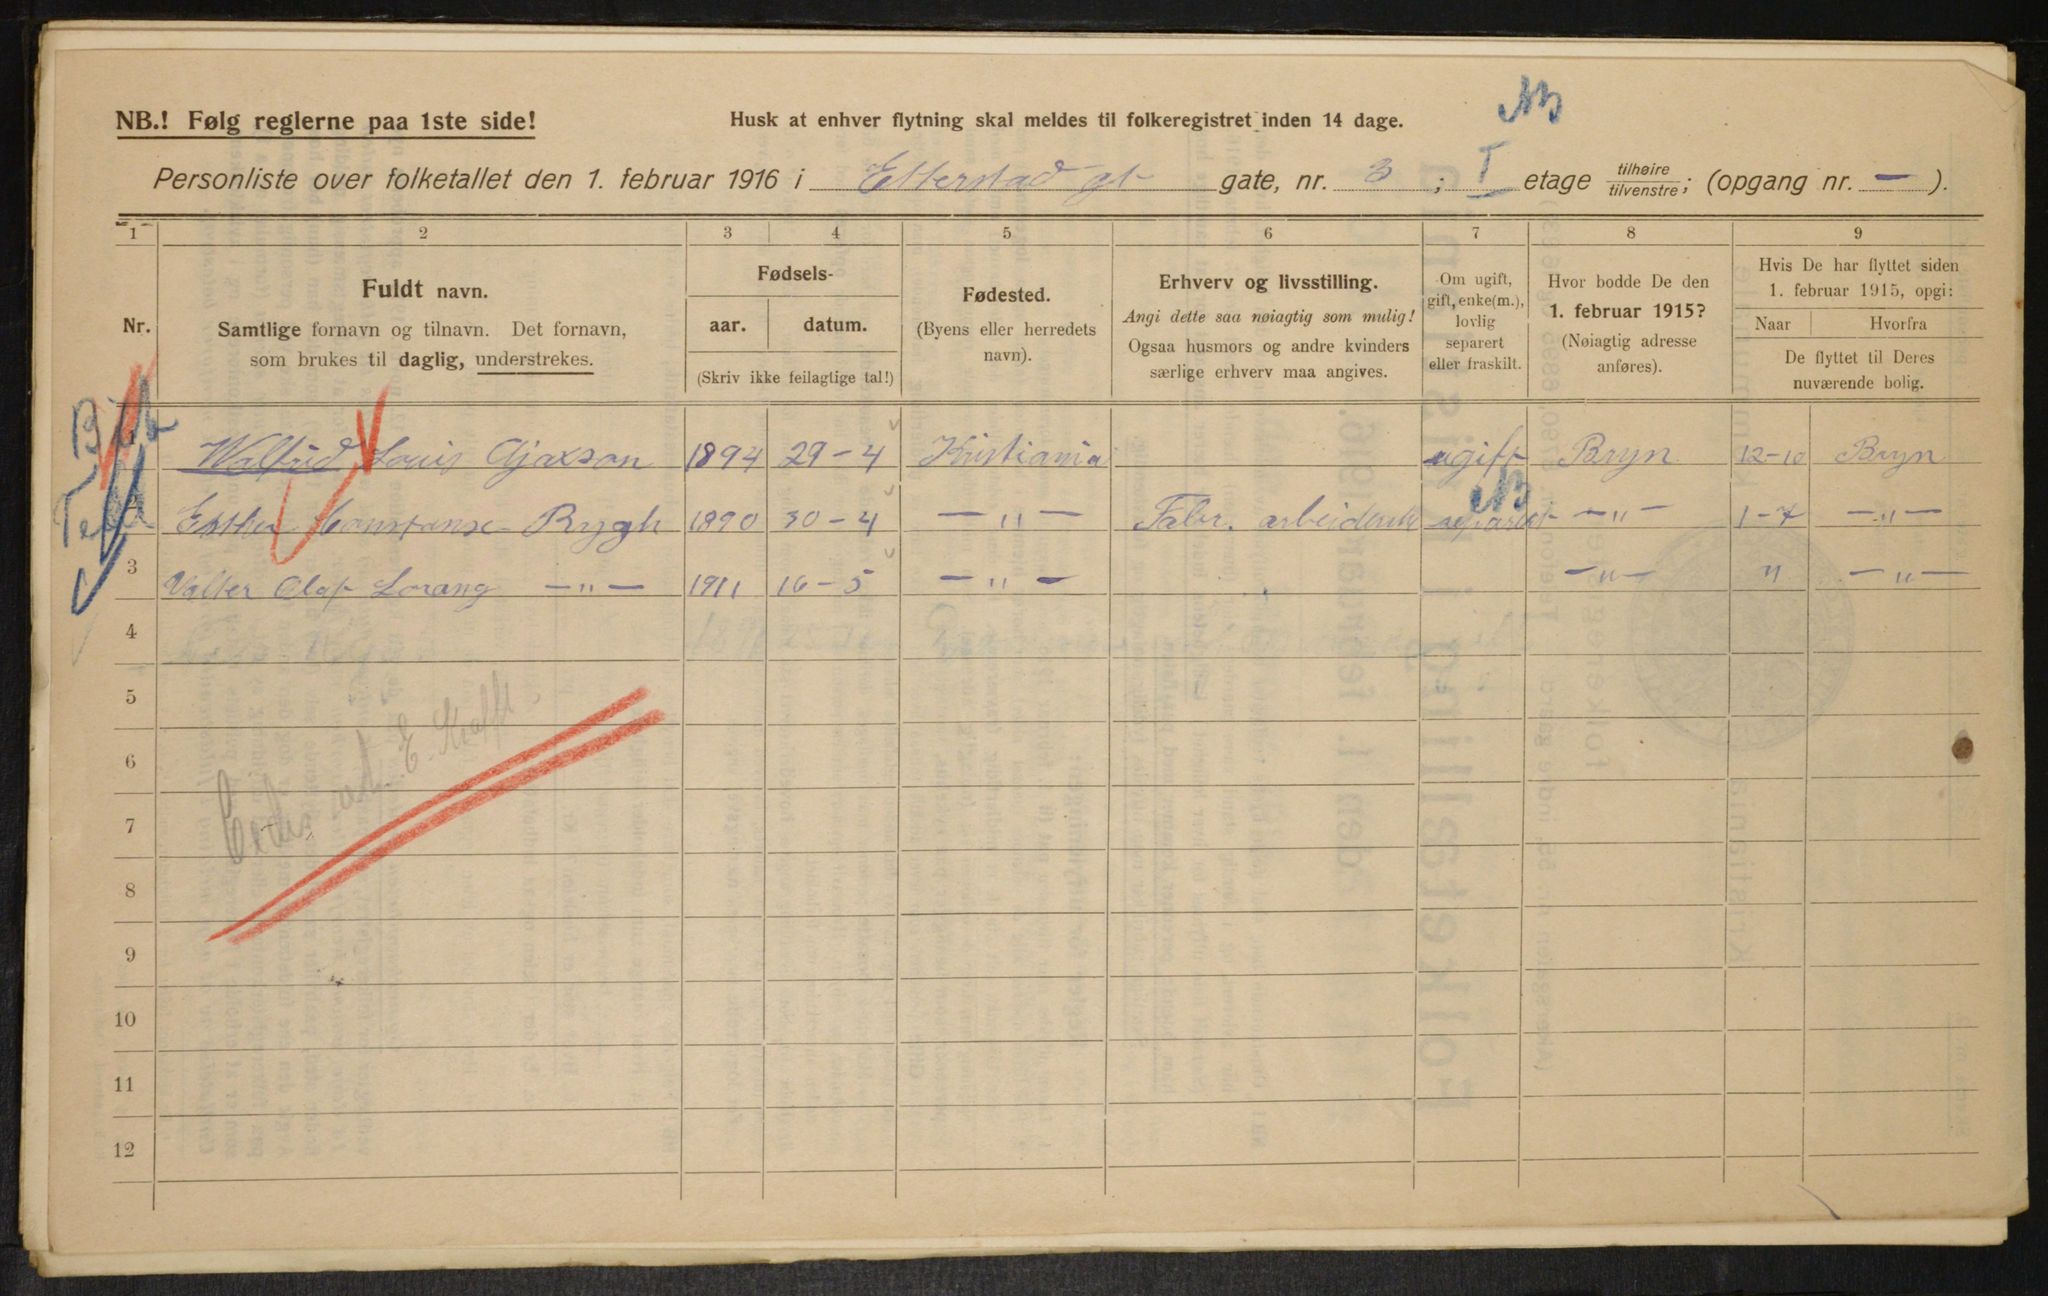 NB
NB.! Følg reglerne paa 1ste side!
Husk at enhver flytning skal meldes til folkeregistret inden 14 dage.
Personliste over folketallet den 1. februar 1916 i Etterstad gt gate, nr. 3 ; I etage tilhøire tilvenstre; (opgang nr. — ).
1 2 3 4 5 6 7 8 9
Nr.
Fuldt navn.
Samtlige fornavn og tilnavn. Det fornavn,
som brukes til daglig, understrekes.
Fødsels-
aar. datum.
(Skriv ikke feilagtige tal!)
Fødested.
(Byens eller herredets
navn).
Erhverv og livsstilling.
Angi dette saa nøiagtig som mulig!
Ogsaa husmors og andre kvinders
særlige erhverv maa angives.
Om ugift,
gift, enke(m.),
lovlig
separert
eller fraskilt.
Hvor bodde De den
1. februar 1915?
(Nøiagtig adresse
anføres).
Hvis De har flyttet siden
1. februar 1915, opgi:
Naar Hvorfra
De flyttet til Deres
nuværende bolig.
Walfrid Louis Ajaxson 1894 29-4 Kristiania ugift Bryn 12-10 Bryn
NB
Esther Constanse Rygh 1890 30-4 —"— Fabr. arbeiderske separert —"— 1-7 —"—
3 Valter Olaf Lorang —"— 1911 16-5 —"— —"— " —"—
4
5
6
7
8
9
10
11
12